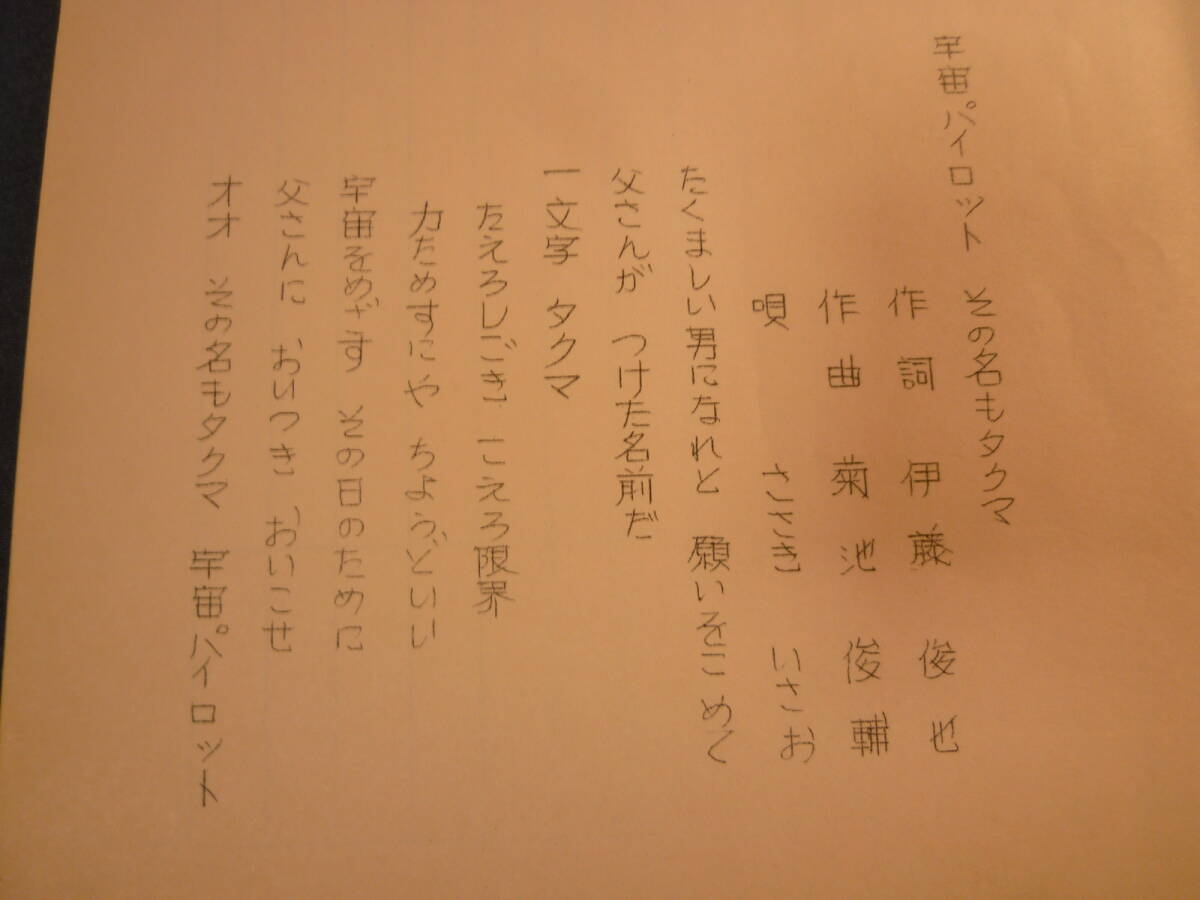 宇宙パイロット その名もタクマ
作詞 伊藤 俊也
作曲 菊池 俊輔
唄 ささき いさお
たくましい男になれと 願いをこめて
父さんが つけた名前だ
一文字 タクマ
たえろしごき こえろ限界
力ためすにや ちようどいい
宇宙をめざす その日のために
父さんに おいつき おいこせ
オオ その名もタクマ 宇宙パイロット